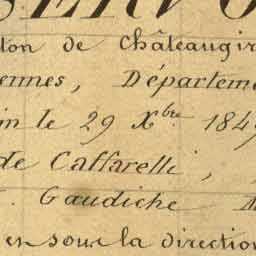 SERVO
ton de Châteaugir
ennes, Départeme
in le 29 Xbre 184
de Caffarelli,
Gaudiche
en sous la direction